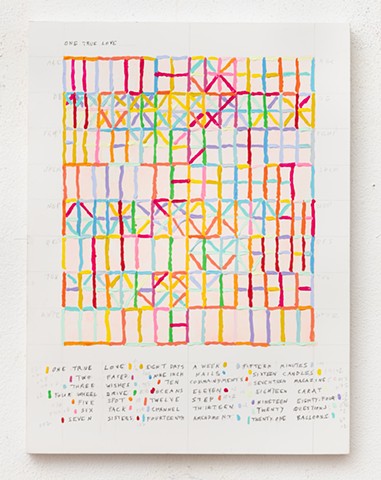 ONE TRUE LOVE
ONE TRUE LOVE EIGHT DAYS A WEEK FIFTEEN MINUTES
TWO FACED NINE INCH NAILS SIXTEEN CANDLES
THREE WISHES TEN COMMANDMENTS SEVENTEEN MAGAZINE
FOUR WHEEL DRIVE OCEANS ELEVEN EIGHTEEN CARAT
FIVE SPOT TWELVE STEP NINETEEN EIGHTY-FOUR
SIX PACK CHANNEL THIRTEEN TWENTY QUESTIONS
SEVEN SISTERS FOURTEENTH AMENDMENT TWENTY-ONE BALLOONS